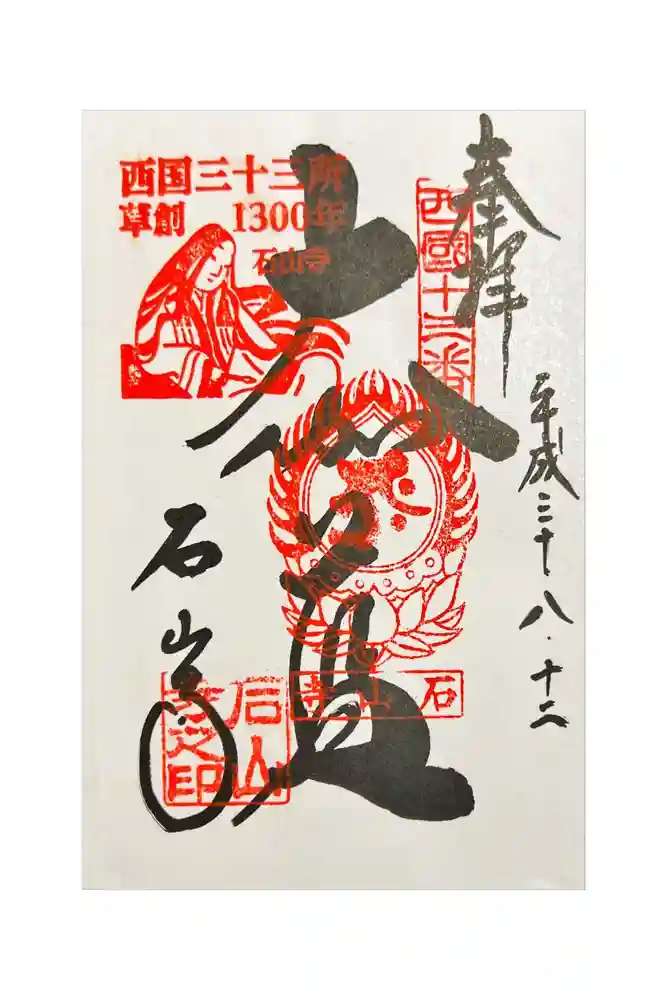 奉拝
平成三十・八・十二
西国三十三所
草創 1300年
石山寺
西國十三番
大伽藍
石山寺
石山寺
石山寺之印